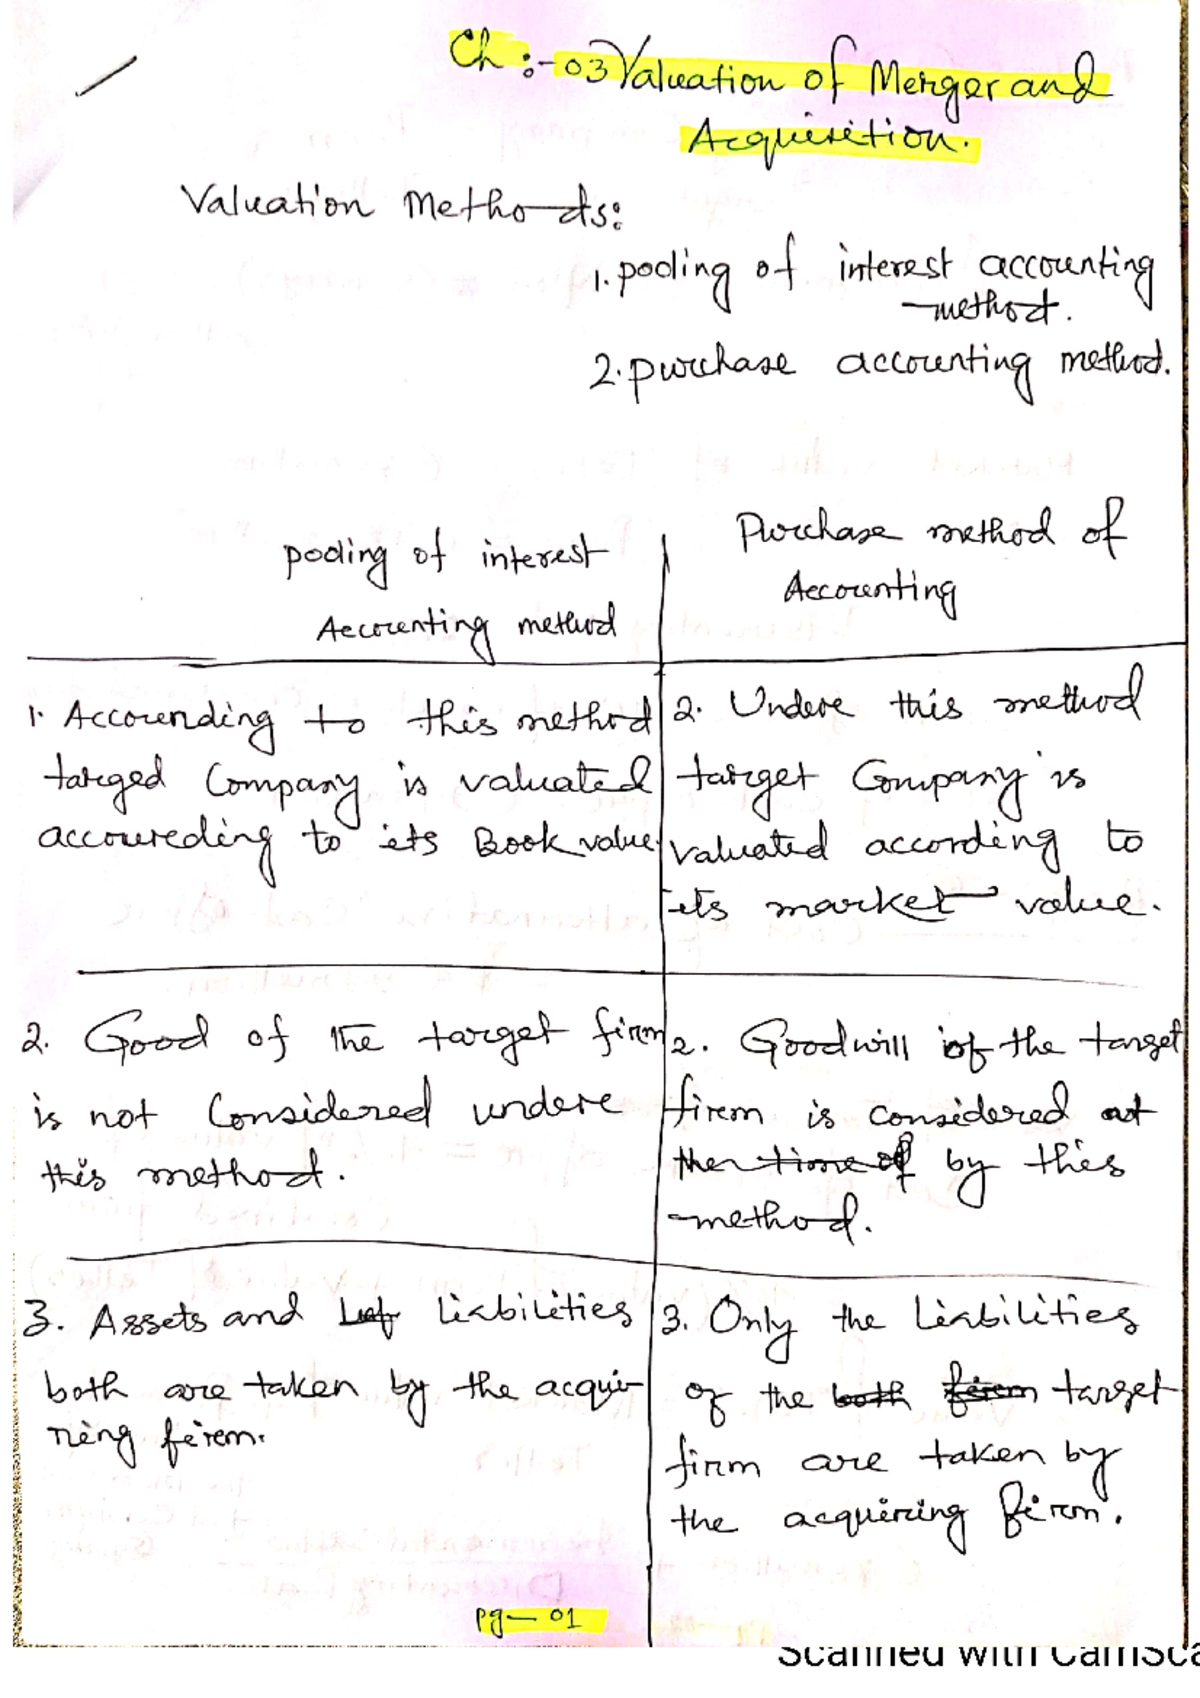 Ch :- 03 Valuation of Merger and
Acquisition.
Valuation Methods:
1. pooling of interest accounting
method.
2. purchase accounting method.
pooling of interest
Accounting method
Purchase method of
Accounting
1. Accounding to this method
targed Company is valuated
accoureding to its Book value.
2. Undere this method
target Company is
valuated according to
its market value.
2. Good of the target firm
is not Considered undere
this method.
2. Goodwill of the target
firem is considered at
the time of by this
method.
3. Assets and liabilities
both are taken by the acqui-
ring firem.
3. Only the liabilities
of the both firem target
firm are taken by
the acquiring firm.
pg- 01
Scanned with CamSca